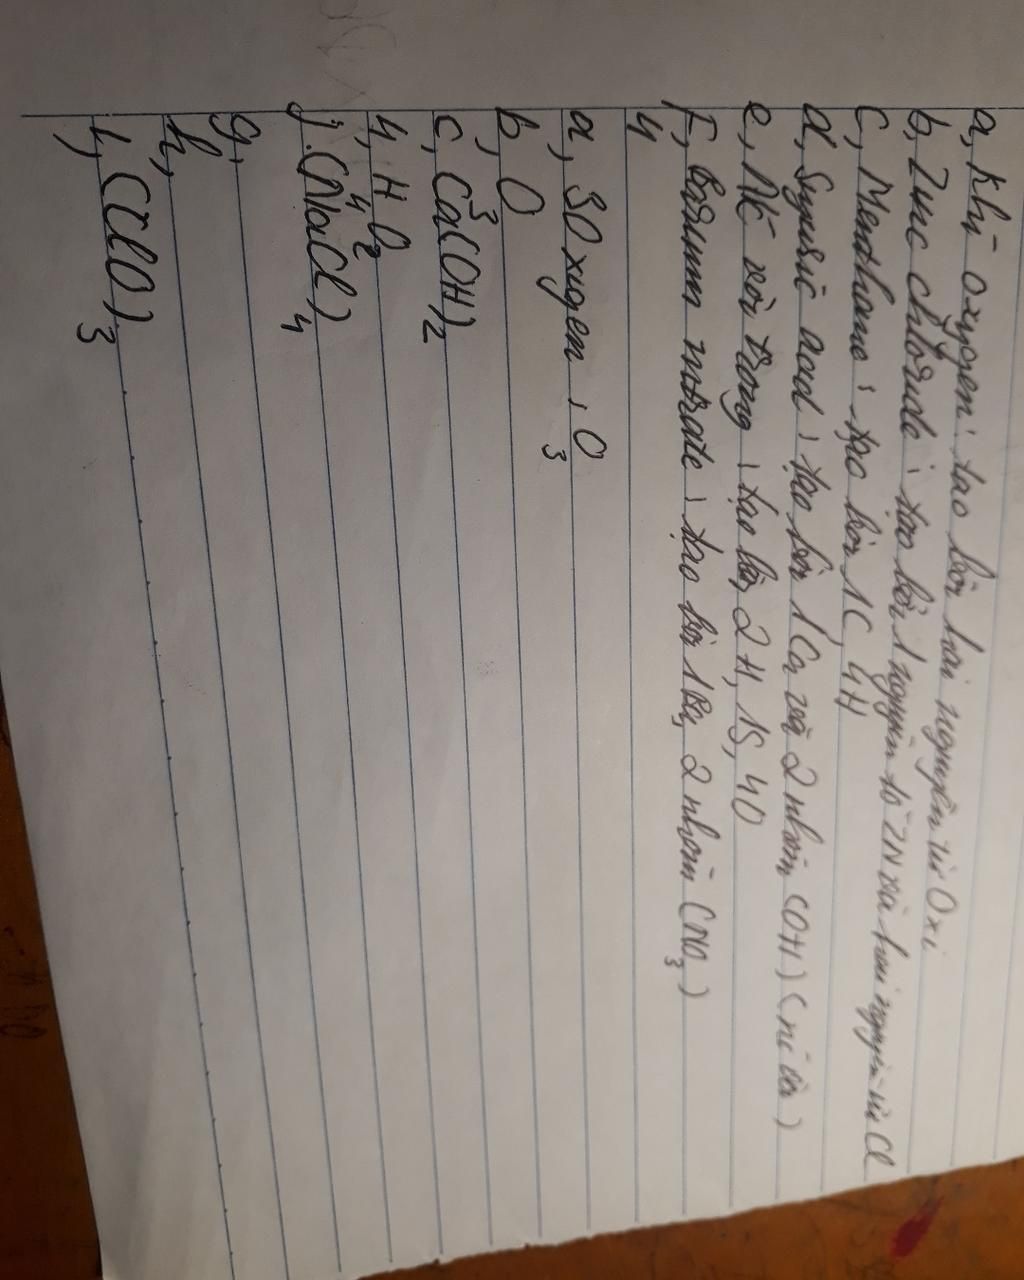 a, Khí oxygen: tạo bởi hai nguyên tử Oxi
b, Zinc chloride: tạo bởi 1 nguyên tố ZN và hai nguyên tử Cl
c, Menthane: tạo bởi 1C, 4H
d, acid: tạo bởi 1 Ca và 2 nhóm (OH)
e, trong: tạo bởi 2H, 1S, 4O
F, Barium nitrate: tạo bởi 1Ba, 2 nhóm (NO3)
4
a, 3Oxygen: O3
b, O
c, Ca3(OH)2
4, H4O2
j. (NaCl)4
g,
h,
i, (ClO)3